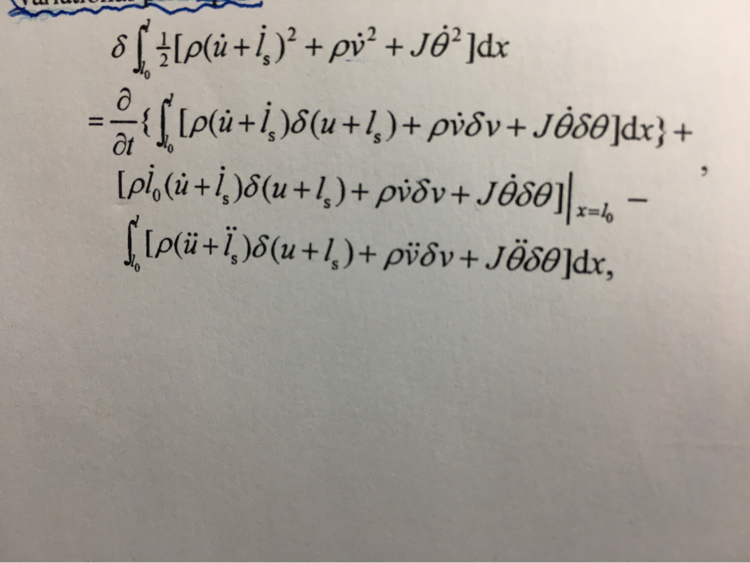 Variational
δ∫_{l₀}^{l} ½[ρ(u̇+l̇ₛ)²+ρv̇²+Jθ̇²]dx
=∂/∂t{∫_{l₀}^{l} [ρ(u̇+l̇ₛ)δ(u+lₛ)+ρv̇δv+Jθ̇δθ]dx}+
[ρl̇₀(u̇+l̇ₛ)δ(u+lₛ)+ρv̇δv+Jθ̇δθ]|_{x=l₀} − ,
∫_{l₀}^{l} [ρ(ü+l̈ₛ)δ(u+lₛ)+ρv̈δv+Jθ̈δθ]dx,